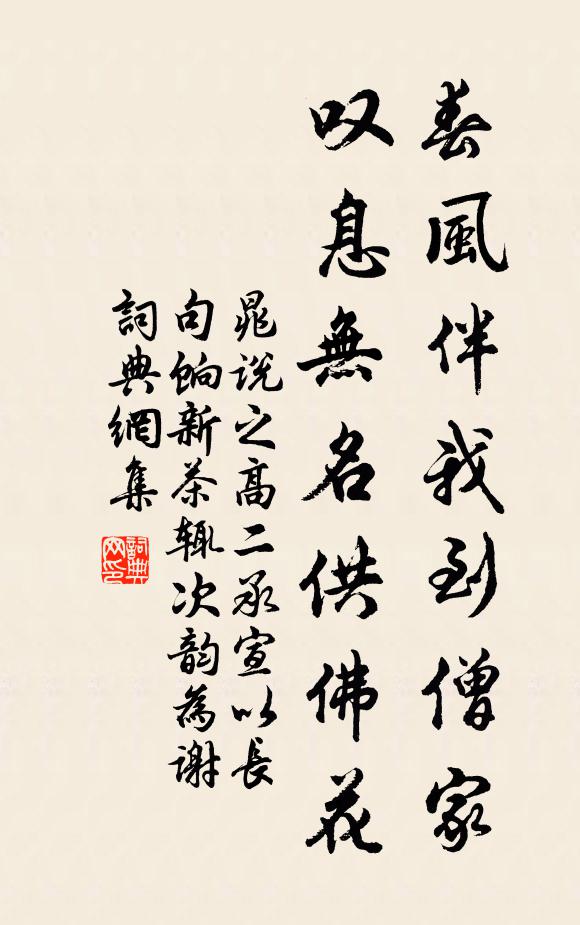 春風伴我到僧家
叹息無名供佛花
晁说之高二承宣以長
句饷新茶辄次韵為谢
詞典網集
詞典网印